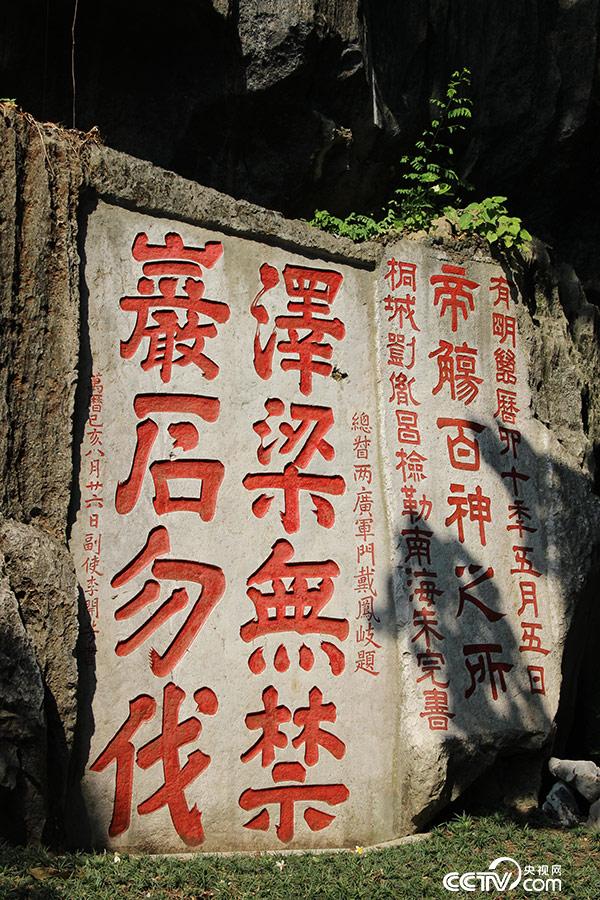 有明萬曆四十年五月五日
帝觴百神之所
桐城劉胤昌檢勒南海朱完書
總督两廣軍門戴鳳岐題
澤梁無禁
巖石勿伐
萬曆己亥八月廿六日副使李開
CCTV.com 央视网